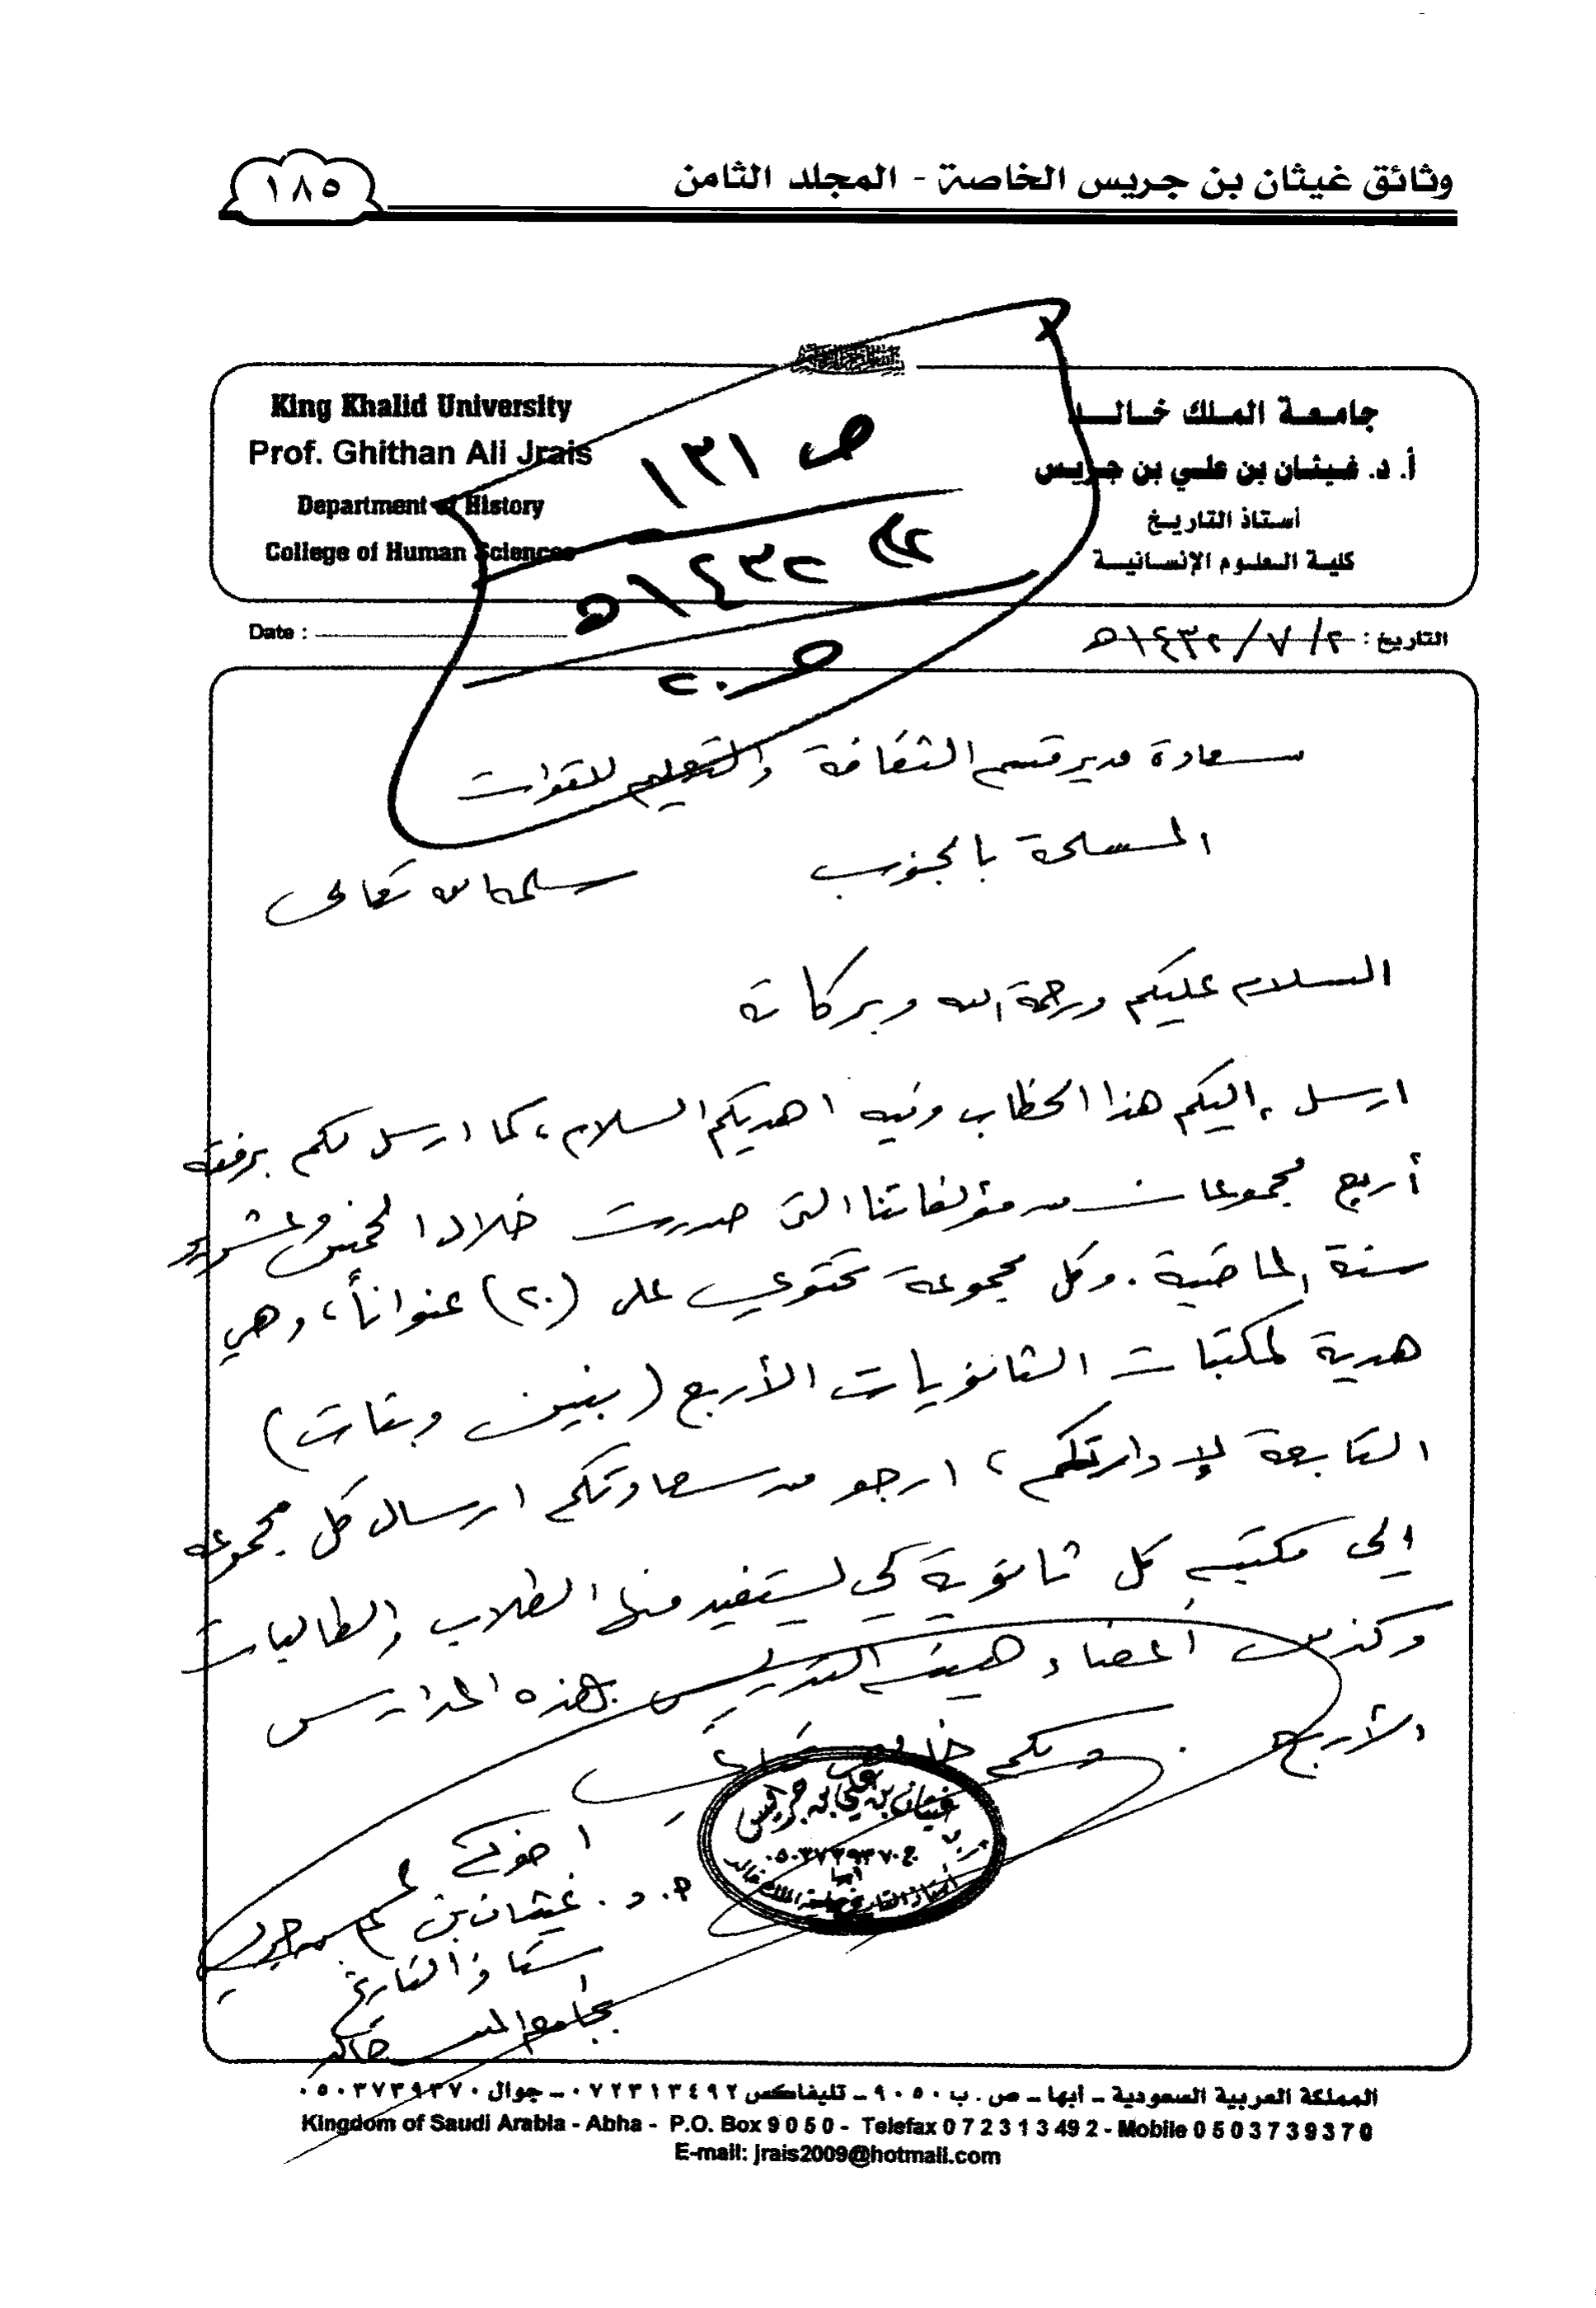 وثائق غيثان بن جريس الخاصة - المجلد الثامن
١٨٥
جامعة الملك خالد
أ. د. غيثان بن علي بن جريس
أستاذ التاريخ
كلية العلوم الإنسانية
King Khalid University
Prof. Ghithan Ali Jrais
Department of History
College of Human Sciences
ص ١٣١
١٤٣٢هـ
التاريخ : ٢/٧/١٤٣٢هـ
Date :
سعادة مدير قسم الثقافة والتعليم للقوات
المسلحة بالجنوب سلمه الله تعالى
السلام عليكم ورحمة الله وبركاته
ارسل إليكم هذا الخطاب وفيه اهديكم السلام، كما ارسل لكم برفقه
أربع مجموعات من مؤلفاتنا التي صدرت خلال الخمس وعشرين
سنة الماضية. وكل مجموعة تحتوي على (٢٠) عنواناً، وهي
هدية لمكتبات الثانويات الأربع (بنين وبنات)
التابعة لإدارتكم، ارجو من سعادتكم ارسال كل مجموعة
إلى مكتبة كل ثانوية كي يستفيد منها الطلاب والطالبات
وكذلك أعضاء هيئة التدريس بهذه المدارس
الأربع. ولكم خالص تحياتي
اخوكم
أ. د. غيثان بن علي بن جريس
أستاذ التاريخ
بجامعة الملك خالد
غيثان بن علي بن جريس
ج ٠٥٠٣٧٣٩٣٧٠
أبها
أستاذ التاريخ بجامعة الملك خالد
المملكة العربية السعودية - أبها - ص. ب ٩٠٥٠ - تليفاكس ٠٧٢٣١٣٤٩٢ - جوال ٠٥٠٣٧٣٩٣٧٠
Kingdom of Saudi Arabia - Abha - P.O. Box 9 0 5 0 - Telefax 0 7 2 3 1 3 4 9 2 - Mobile 0 5 0 3 7 3 9 3 7 0
E-mail: jrais2009@hotmail.com